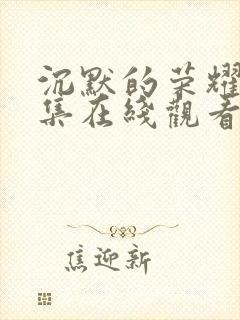 沉默的荣耀
集在綫觀看
焦迎新